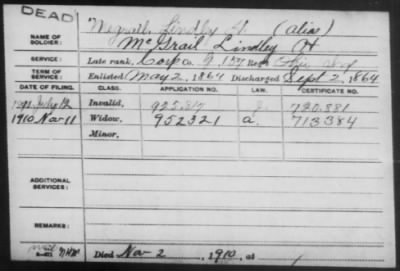 DEAD
Lindley H (alias)
NAME OF SOLDIER: McGrail Lindley H
SERVICE: Late rank, Corp Co. G, 157 Reg't Ohio Inf
TERM OF SERVICE: Enlisted May 2, 1864 Discharged Sept 2, 1864
DATE OF FILING. CLASS. APPLICATION NO. LAW. CERTIFICATE NO.
July 12 Invalid, 925.817 720.881
1910 Nov 11 Widow, 952321 a. 713384
Minor,
ADDITIONAL SERVICES:
REMARKS:
Died Nov 2, 1910, at